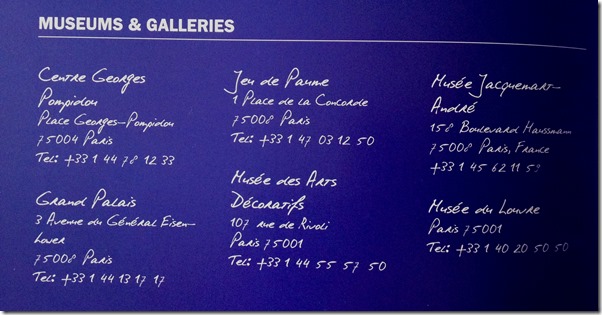 MUSEUMS & GALLERIES
Centre Georges
Pompidou
Place Georges-Pompidou
75004 Paris
Tel: +33 1 44 78 12 33
Grand Palais
3 Avenue du Général Eisen-
hower
75008 Paris
Tel: +33 1 44 13 17 17
Jeu de Paume
1 Place de la Concorde
75008 Paris
Tel: +33 1 47 03 12 50
Musée des Arts
Décoratifs
107 rue de Rivoli
Paris 75001
Tel: +33 1 44 55 57 50
Musée Jacquemart-
André
158 Boulevard Haussmann
75008 Paris, France
+33 1 45 62 11 59
Musée du Louvre
Paris 75001
Tel: +33 1 40 20 50 50